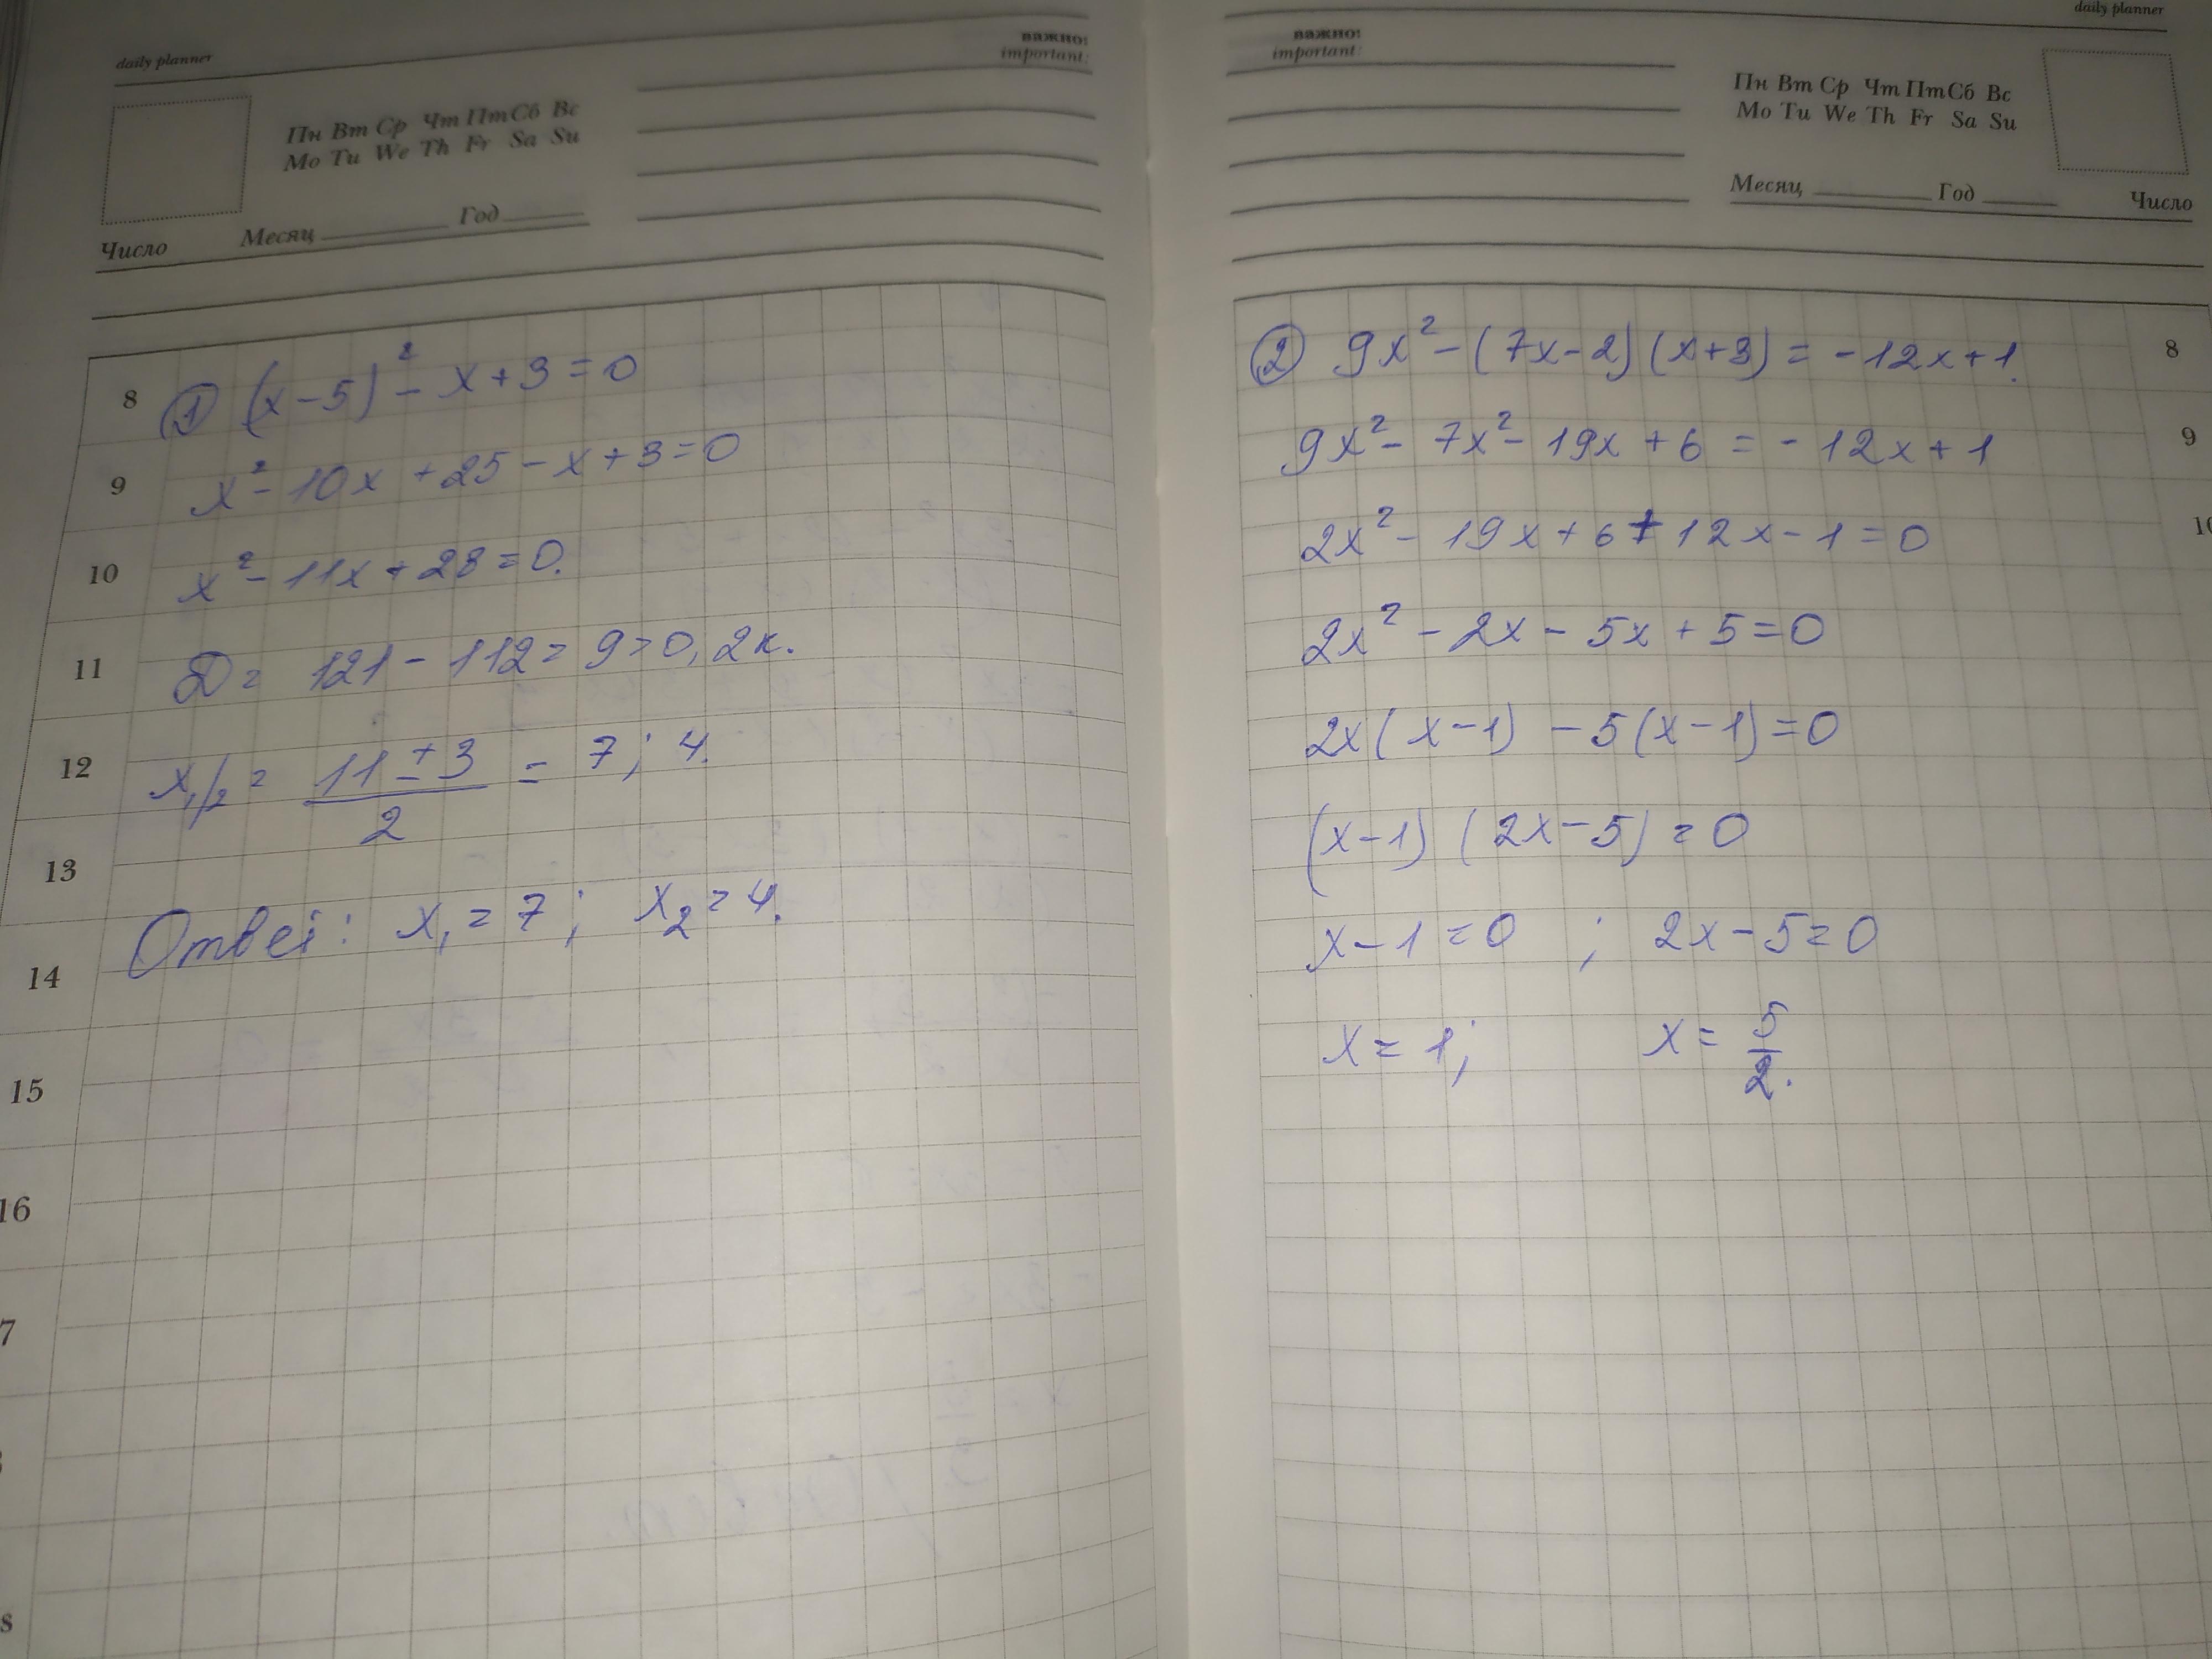 daily planner
важно!
important:
Пн Вт Ср Чт Пт Сб Вс
Mo Tu We Th Fr Sa Su
Число Месяц ______ Год ______
8 ① (x-5)² - x + 3 = 0
9 x² - 10x + 25 - x + 3 = 0
10 x² - 11x + 28 = 0.
11 D = 121 - 112 = 9 > 0, 2к.
12 x₁/₂ = (11 ± 3)/2 = 7; 4.
13
14 Ответ: x₁ = 7; x₂ = 4.
15
16
7
s
daily planner
важно!
important:
Пн Вт Ср Чт Пт Сб Вс
Mo Tu We Th Fr Sa Su
Месяц ______ Год ______ Число
② 9x² - (7x-2)(x+3) = -12x+1. 8
9x² - 7x² - 19x + 6 = -12x + 1 9
2x² - 19x + 6 + 12x - 1 = 0 10
2x² - 2x - 5x + 5 = 0
2x(x-1) - 5(x-1) = 0
(x-1)(2x-5) = 0
x-1 = 0 ; 2x-5 = 0
x = 1; x = 5/2.